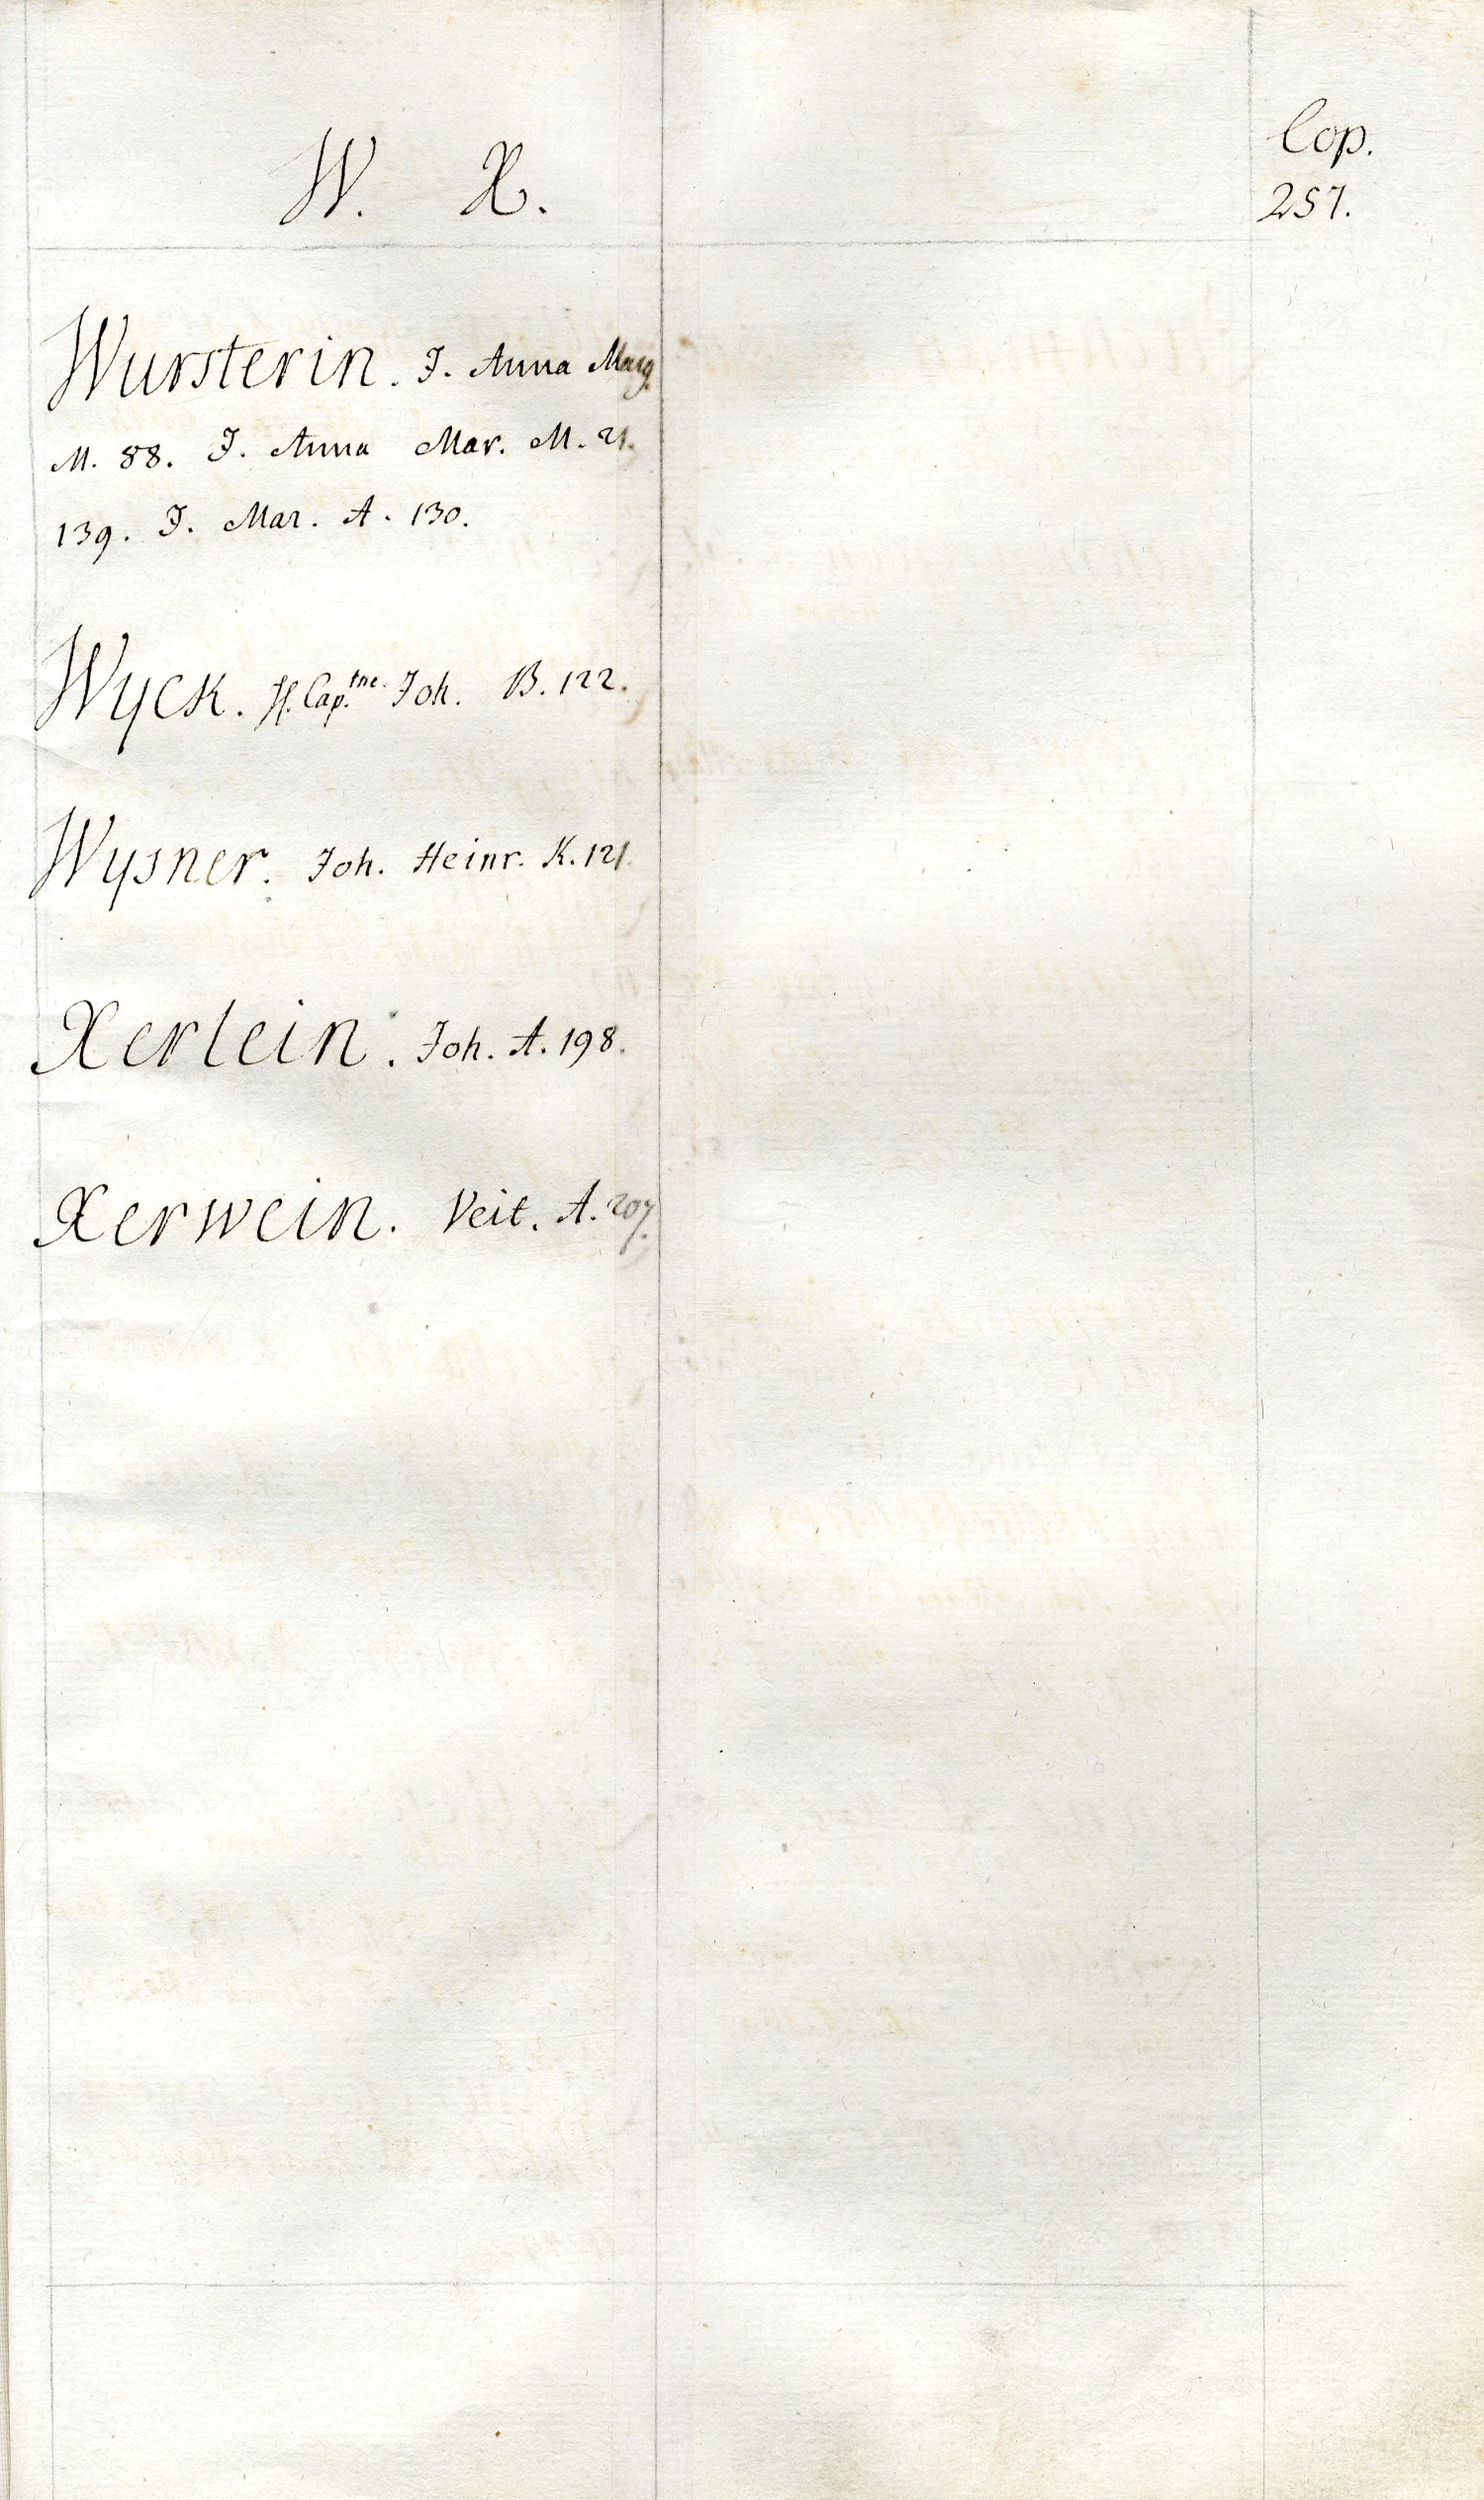 W. X.
Cop.
257.
Wursterin. J. Anna Marg.
M. 88. J. Anna Mar. M. 21.
139. J. Mar. A. 130.
Wyck. H. Cap.tne. Joh. B. 122.
Wysner. Joh. Heinr. K. 121.
Xerlein. Joh. A. 198.
Xerwein. Veit. A. 207.